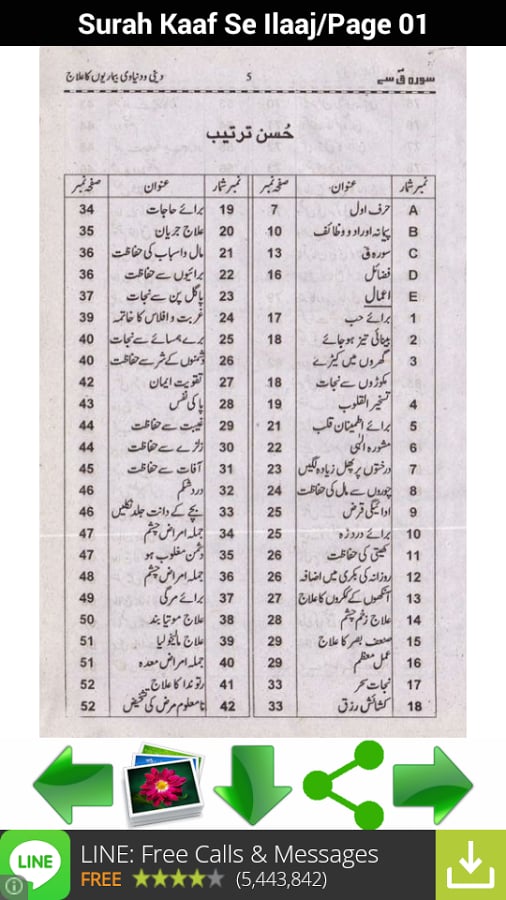 Surah Kaaf Se Ilaaj/Page 01
سورہ ق سے 5 دینی و دنیاوی بیماریوں کا علاج
حُسن ترتیب
نمبر شمار عنوان صفحہ نمبر نمبر شمار عنوان صفحہ نمبر
A حرف اول 7 19 برائے حاجات 34
B پیمانہ اوراد و وظائف 10 20 علاج جریان 35
C سورہ ق 13 21 مال و اسباب کی حفاظت 36
D فضائل 16 22 برائیوں سے حفاظت 36
E اعمال 23 پاگل پن سے نجات 37
1 برائے حب 17 24 غربت و افلاس کا خاتمہ 39
2 بینائی تیز ہو جائے 18 25 برے ہمسائے سے نجات 40
3 گھروں میں کیڑے 26 دشمنوں کے شر سے حفاظت 40
مکوڑوں سے نجات 18 27 تقویت ایمان 42
4 تسخیر القلوب 19 28 پاکی نفس 43
5 برائے اطمینان قلب 21 29 غیبت سے حفاظت 44
6 مشورہ الٰہی 22 30 زلزلے سے حفاظت 44
7 درختوں پر پھل زیادہ لگیں 23 31 آفات سے حفاظت 45
8 چوروں سے مال کی حفاظت 24 32 درد شکم 46
9 ادائیگی قرض 25 33 بچے کے دانت جلد نکلیں 46
10 برائے درد زہ 25 34 جملہ امراض چشم 47
11 کھیتی کی حفاظت 26 35 دشمن مغلوب ہو 47
12 روزانہ کی بکری میں اضافہ 26 36 جملہ امراض چشم 48
13 آنکھوں کے لکروں کا علاج 27 37 برائے مرگی 49
14 علاج زخم چشم 28 38 علاج موتیا بند 50
15 ضعف بصر کا علاج 29 39 علاج مالیخولیا 51
16 عمل معظم 29 40 جملہ امراض معدہ 51
17 نجات سحر 33 41 رتوندا کا علاج 52
18 کشائش رزق 33 42 نامعلوم مرض کی تشخیص 52
LINE
LINE: Free Calls & Messages
FREE (5,443,842)